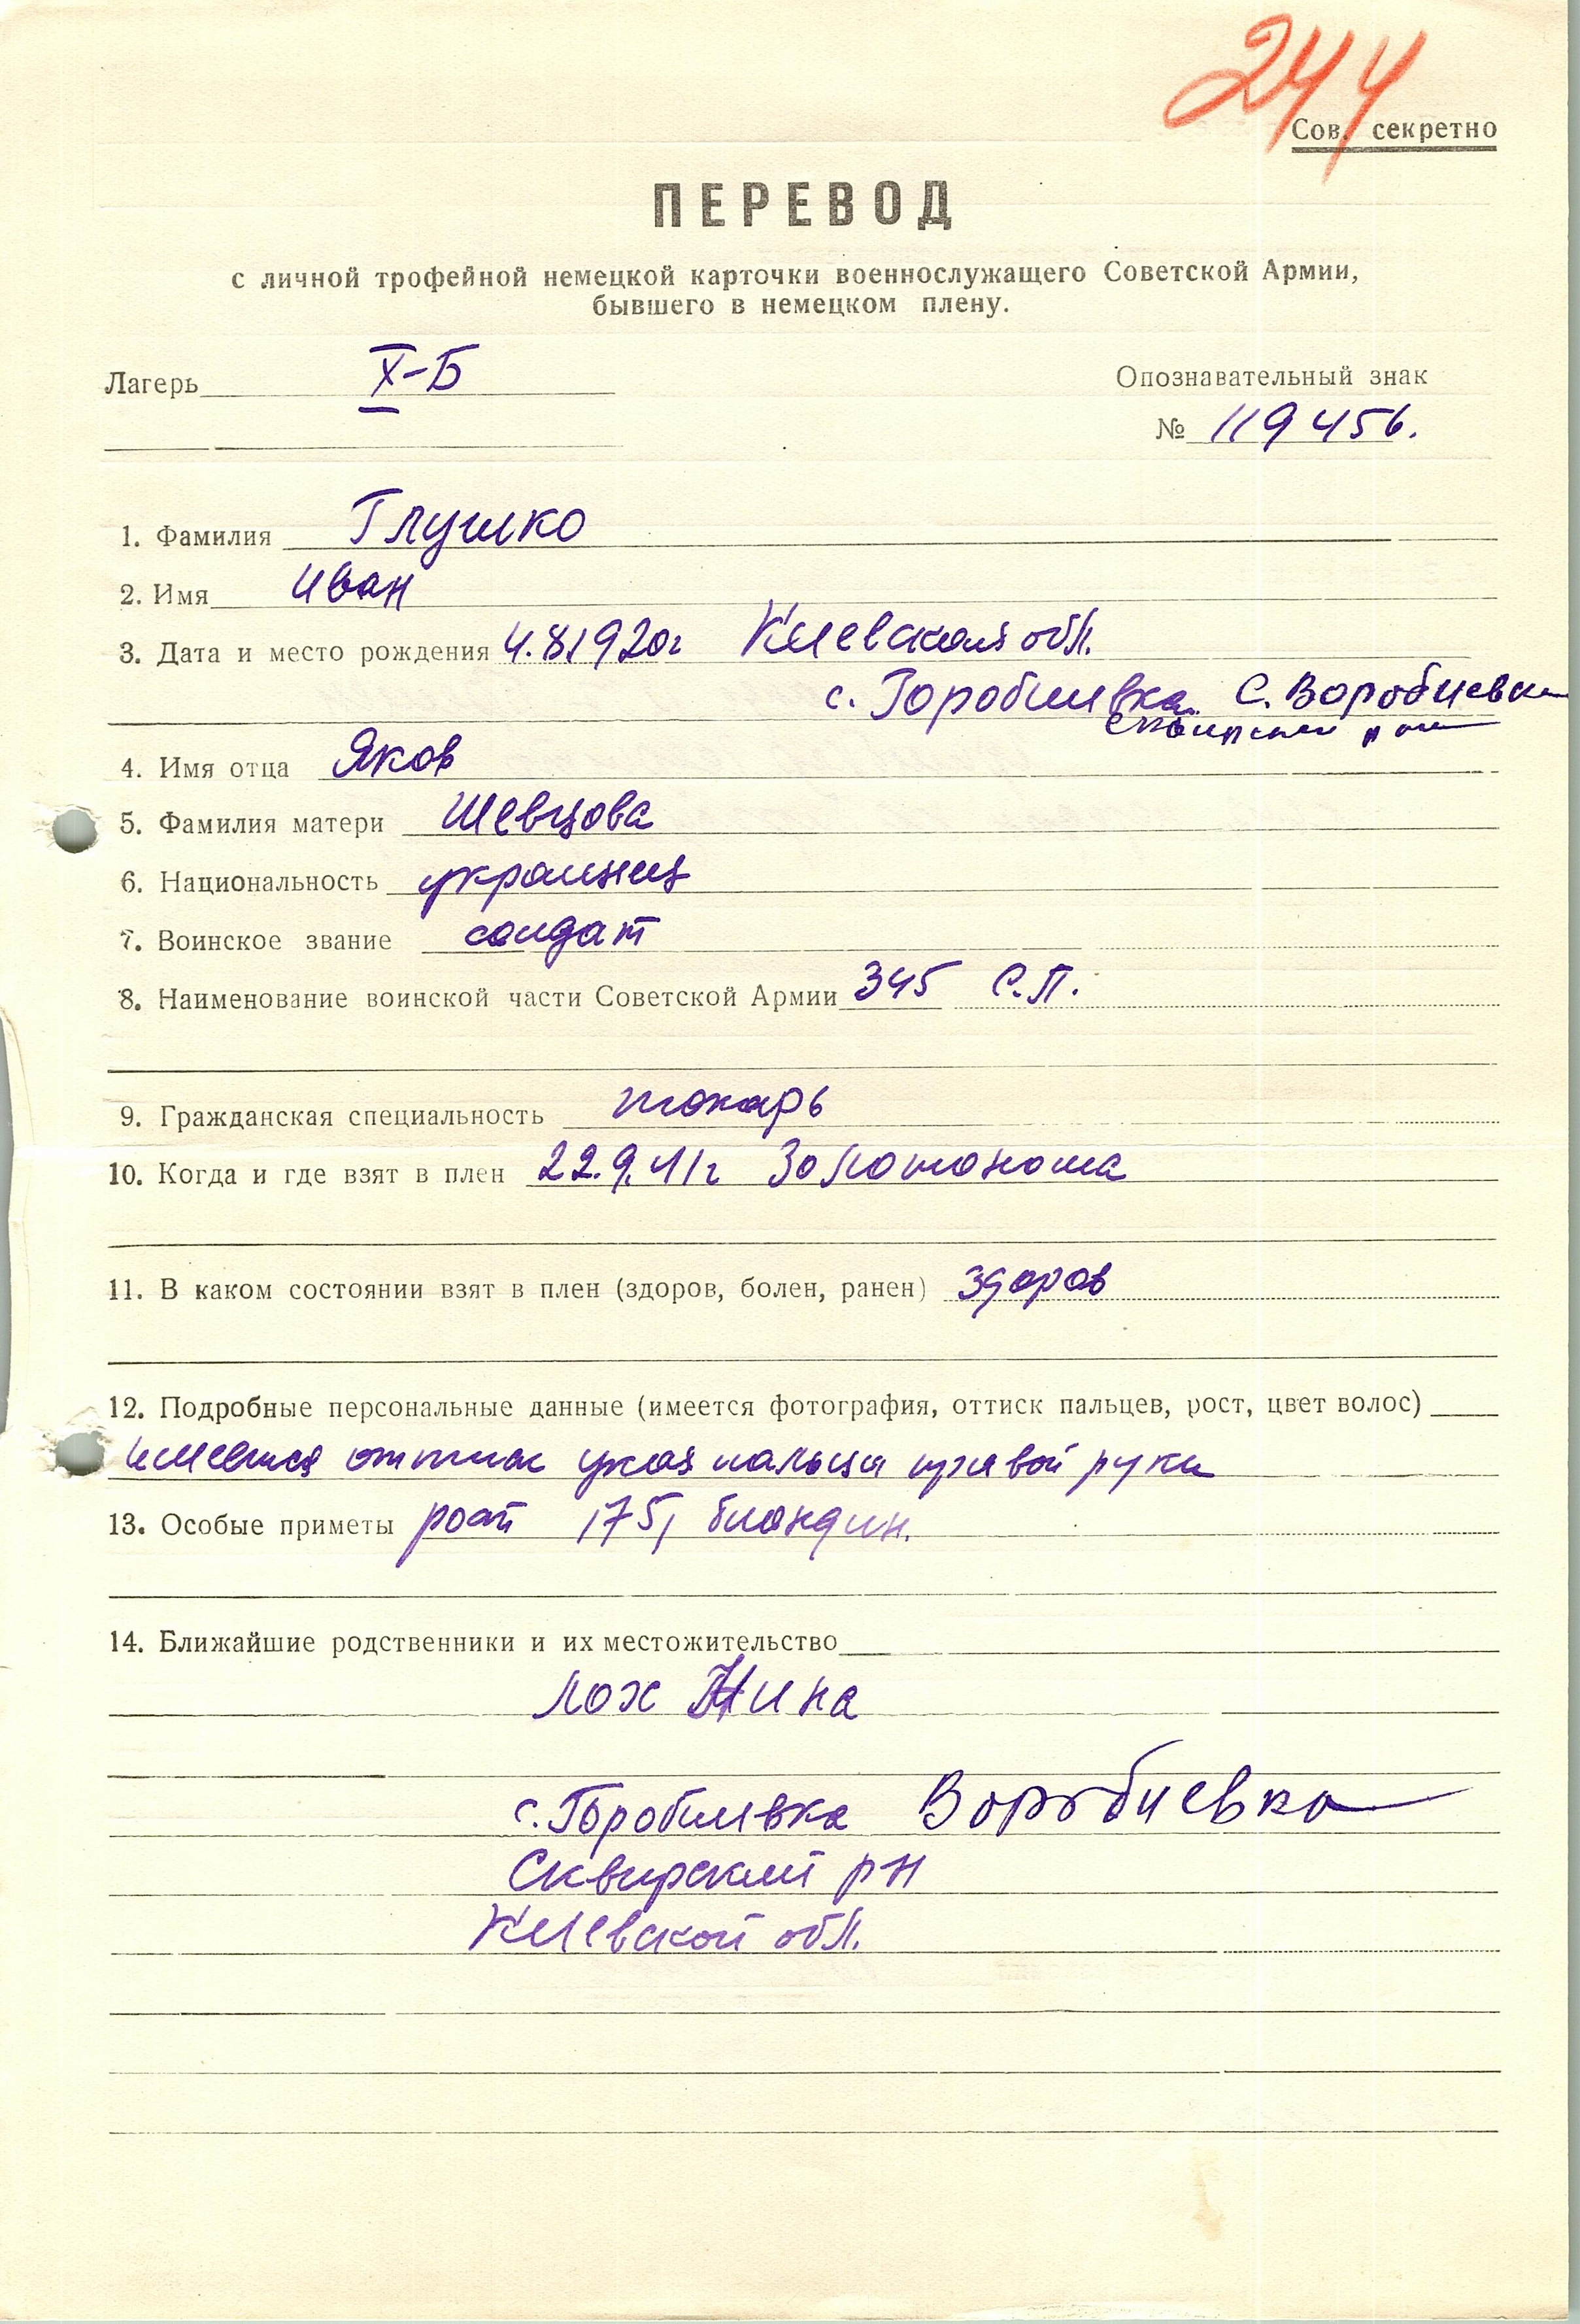 244
Сов. секретно
ПЕРЕВОД
с личной трофейной немецкой карточки военнослужащего Советской Армии,
бывшего в немецком плену.
Лагерь X-Б
Опознавательный знак
№ 119456.
1. Фамилия Глушко
2. Имя Иван
3. Дата и место рождения 4.8.1920г Киевская обл.
с. Горобиивка С. Воробиевка
Сквирский район
4. Имя отца Яков
5. Фамилия матери Шевцова
6. Национальность украинец
7. Воинское звание солдат
8. Наименование воинской части Советской Армии 345 С.П.
9. Гражданская специальность токарь
10. Когда и где взят в плен 22.9.41г Золотоноша
11. В каком состоянии взят в плен (здоров, болен, ранен) здоров
12. Подробные персональные данные (имеется фотография, оттиск пальцев, рост, цвет волос)
имеется оттиск указ пальца правой руки
13. Особые приметы рост 175, блондин.
14. Ближайшие родственники и их местожительство
Лох Нина
с. Горобиивка Воробиевка
Сквирский р-н
Киевской обл.